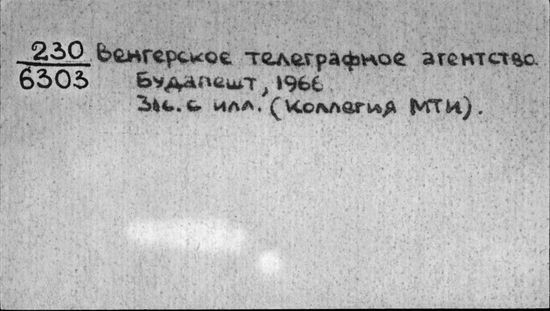 230 Венгерское телеграфное агентство.
6303 Будапешт, 1966
31б. с илл. (Коллегия МТИ).